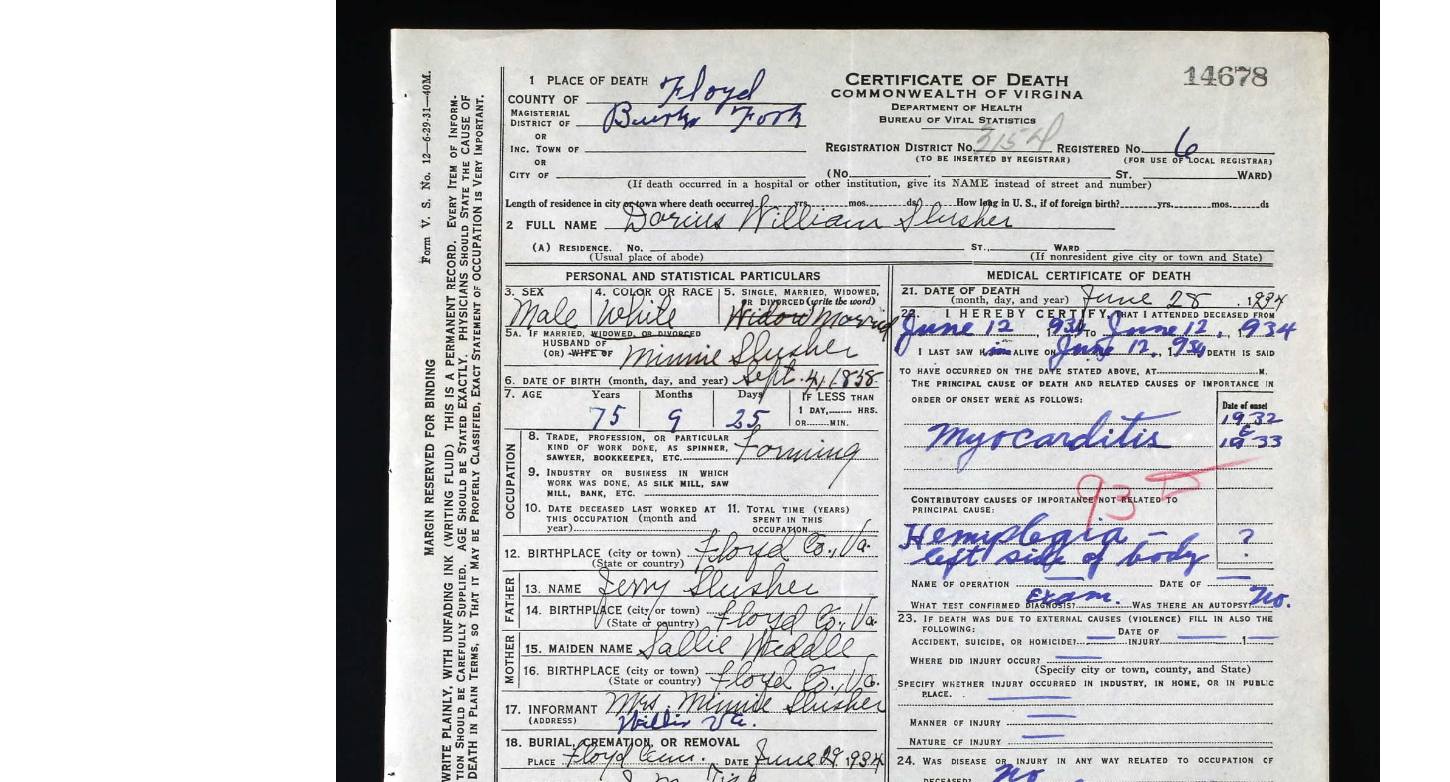 14678
CERTIFICATE OF DEATH
COMMONWEALTH OF VIRGINA
DEPARTMENT OF HEALTH
BUREAU OF VITAL STATISTICS
1 PLACE OF DEATH
COUNTY OF Floyd
MAGISTERIAL DISTRICT OF Burks Fork
OR
INC. TOWN OF
OR
CITY OF
REGISTRATION DISTRICT No. 3154 REGISTERED No. 6
(TO BE INSERTED BY REGISTRAR) (FOR USE OF LOCAL REGISTRAR)
(No. ST. WARD)
(If death occurred in a hospital or other institution, give its NAME instead of street and number)
Length of residence in city or town where death occurred yrs. mos. ds. How long in U. S., if of foreign birth? yrs. mos. ds
2 FULL NAME Darius William Slusher
(A) RESIDENCE. No. ST., WARD
(Usual place of abode) (If nonresident give city or town and State)
PERSONAL AND STATISTICAL PARTICULARS
3. SEX 4. COLOR OR RACE 5. SINGLE, MARRIED, WIDOWED, OR DIVORCED (write the word)
Male White Widow Married
5A. IF MARRIED, WIDOWED, OR DIVORCED
HUSBAND OF
(OR) WIFE OF Minnie Slusher
6. DATE OF BIRTH (month, day, and year) Sept. 4, 1858
7. AGE Years Months Days IF LESS THAN
1 DAY, HRS.
OR MIN.
75 9 25
OCCUPATION
8. TRADE, PROFESSION, OR PARTICULAR
KIND OF WORK DONE, AS SPINNER,
SAWYER, BOOKKEEPER, ETC. Farming
9. INDUSTRY OR BUSINESS IN WHICH
WORK WAS DONE, AS SILK MILL, SAW
MILL, BANK, ETC.
10. DATE DECEASED LAST WORKED AT THIS OCCUPATION (month and year)
11. TOTAL TIME (YEARS) SPENT IN THIS OCCUPATION
12. BIRTHPLACE (city or town) Floyd Co., Va.
(State or country)
FATHER
13. NAME Jerry Slusher
14. BIRTHPLACE (city or town) Floyd Co., Va.
(State or country)
MOTHER
15. MAIDEN NAME Sallie Weddle
16. BIRTHPLACE (city or town) Floyd Co., Va.
(State or country)
17. INFORMANT Mrs. Minnie Slusher
(ADDRESS) Willis Va.
18. BURIAL, CREMATION, OR REMOVAL
PLACE Floyd Cem. DATE June 29, 1934
MEDICAL CERTIFICATE OF DEATH
21. DATE OF DEATH
(month, day, and year) June 28, 1934
22. I HEREBY CERTIFY, THAT I ATTENDED DECEASED FROM
June 12, 1934 TO June 12, 1934
I LAST SAW him ALIVE ON June 12, 1934 DEATH IS SAID
TO HAVE OCCURRED ON THE DATE STATED ABOVE, AT M.
THE PRINCIPAL CAUSE OF DEATH AND RELATED CAUSES OF IMPORTANCE IN
ORDER OF ONSET WERE AS FOLLOWS:
Date of onset
1932
1933
Myocarditis
93
CONTRIBUTORY CAUSES OF IMPORTANCE NOT RELATED TO
PRINCIPAL CAUSE:
Hemiplegia - ?
left side of body
NAME OF OPERATION DATE OF
WHAT TEST CONFIRMED DIAGNOSIS? Exam. WAS THERE AN AUTOPSY? No.
23. IF DEATH WAS DUE TO EXTERNAL CAUSES (VIOLENCE) FILL IN ALSO THE
FOLLOWING:
ACCIDENT, SUICIDE, OR HOMICIDE? DATE OF INJURY 1
WHERE DID INJURY OCCUR?
(Specify city or town, county, and State)
SPECIFY WHETHER INJURY OCCURRED IN INDUSTRY, IN HOME, OR IN PUBLIC
PLACE.
MANNER OF INJURY
NATURE OF INJURY
24. WAS DISEASE OR INJURY IN ANY WAY RELATED TO OCCUPATION OF
DECEASED? No
Form V. S. No. 12—6-29-31—40M.
MARGIN RESERVED FOR BINDING
WRITE PLAINLY, WITH UNFADING INK (WRITING FLUID) THIS IS A PERMANENT RECORD. EVERY ITEM OF INFORM-
TION SHOULD BE CAREFULLY SUPPLIED. AGE SHOULD BE STATED EXACTLY. PHYSICIANS SHOULD STATE THE CAUSE OF
DEATH IN PLAIN TERMS, SO THAT IT MAY BE PROPERLY CLASSIFIED, EXACT STATEMENT OF OCCUPATION IS VERY IMPORTANT.